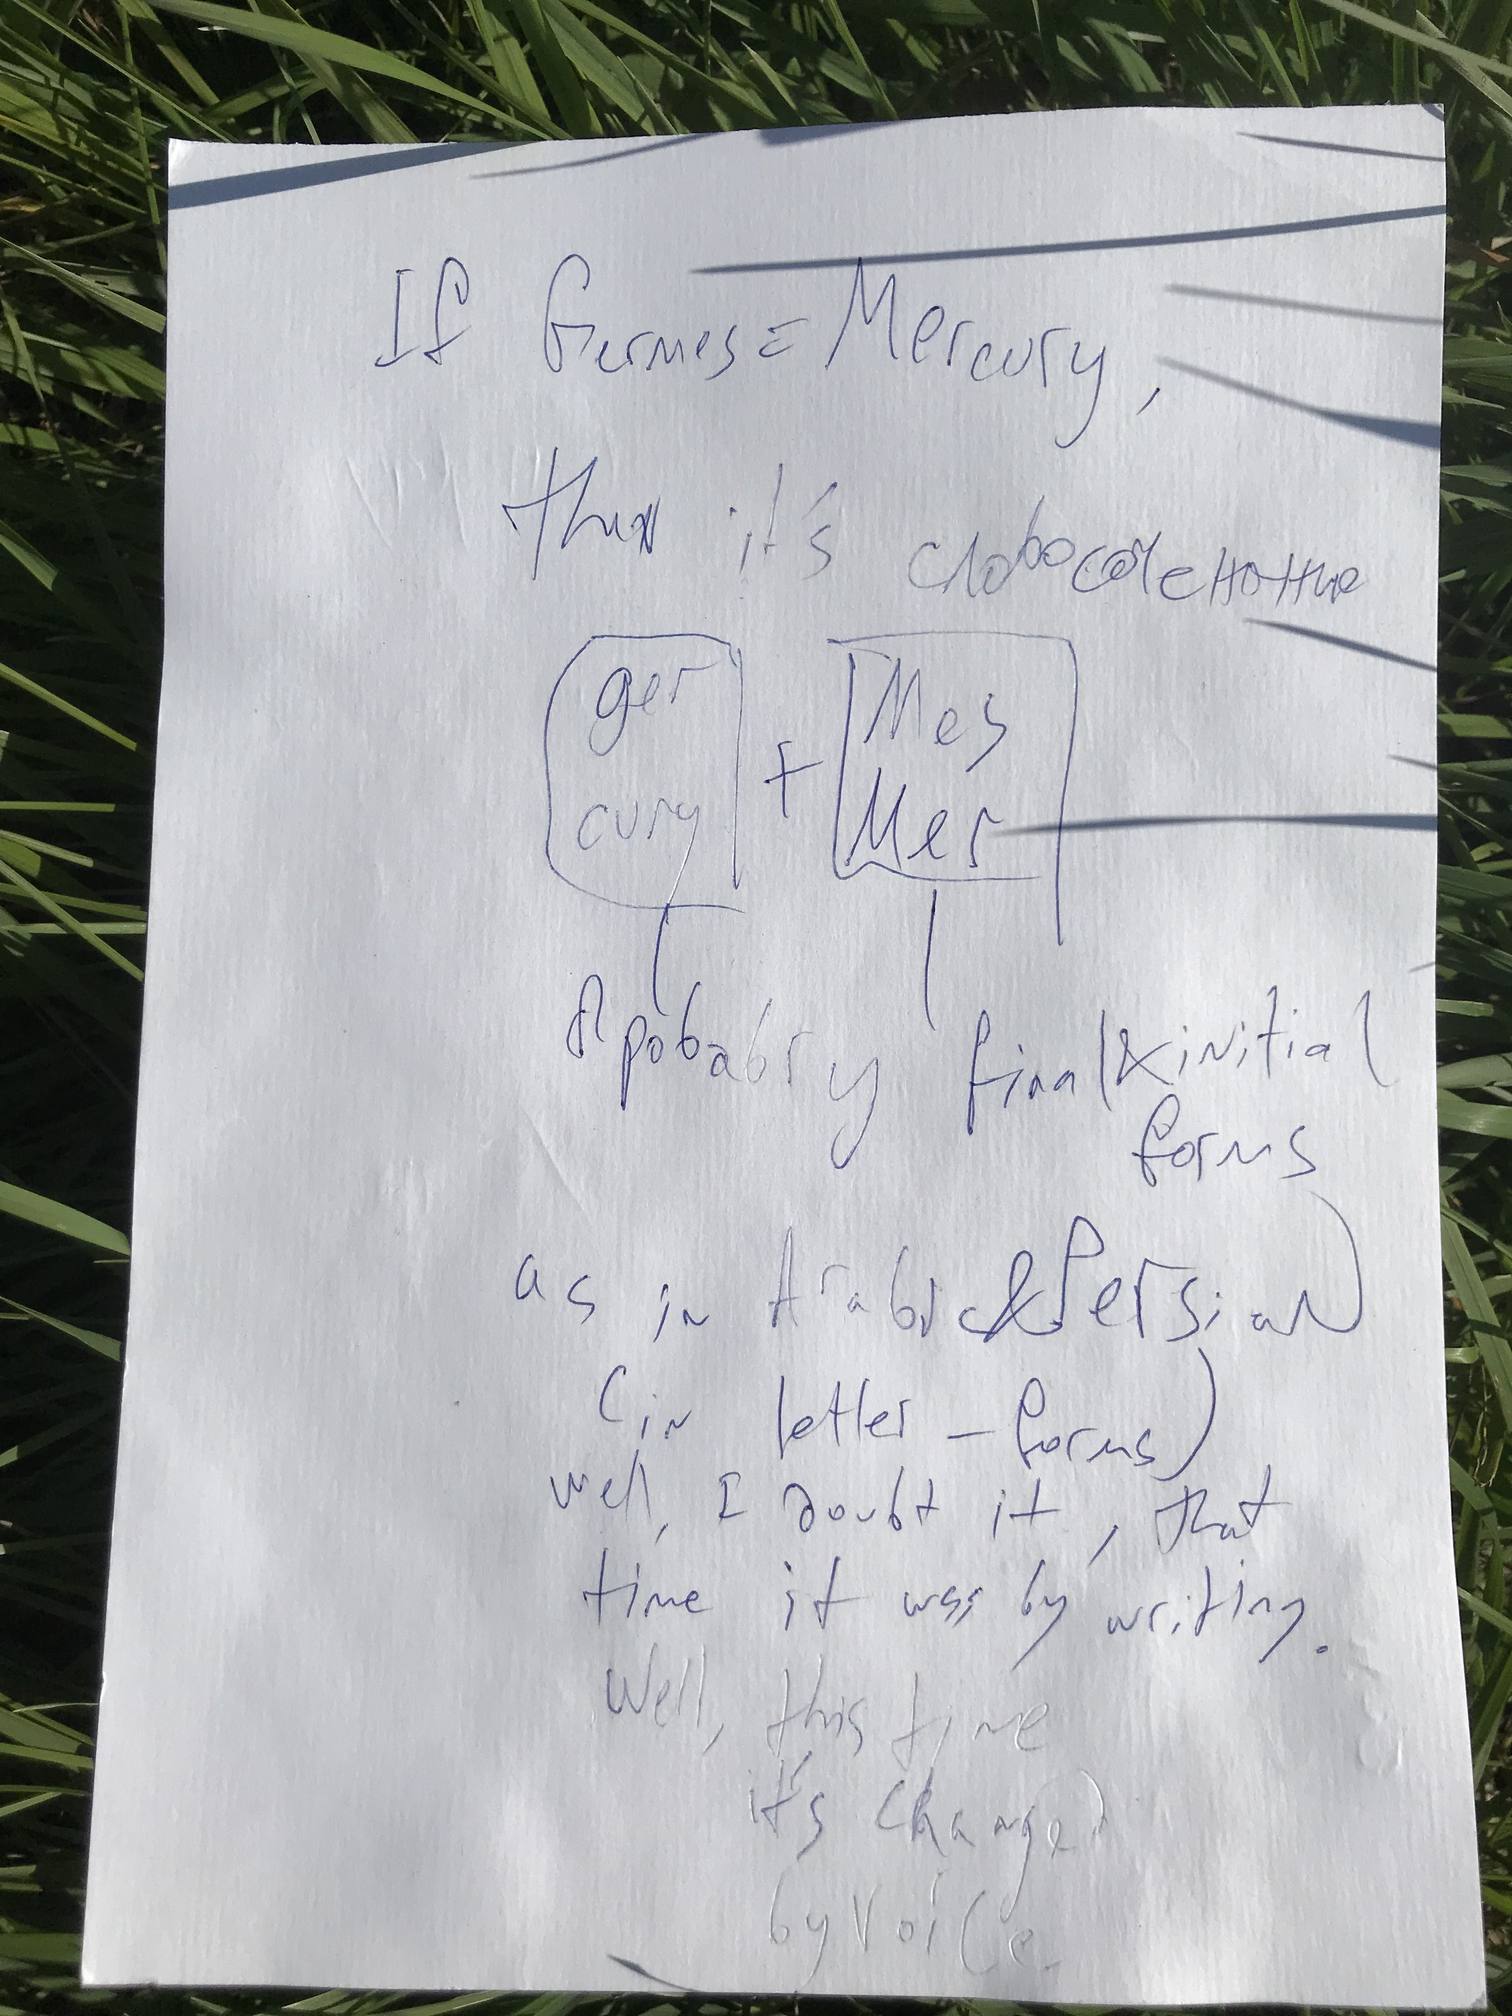 If Germes = Mercury,
then it's словосочетание
ger + Mes
cury Mer
pobabry final & initial
forms
as in Arabic & Persian
(in letter-forms)
well, I doubt it, that
time it was by writing.
Well, this time
it's changed
by voice.